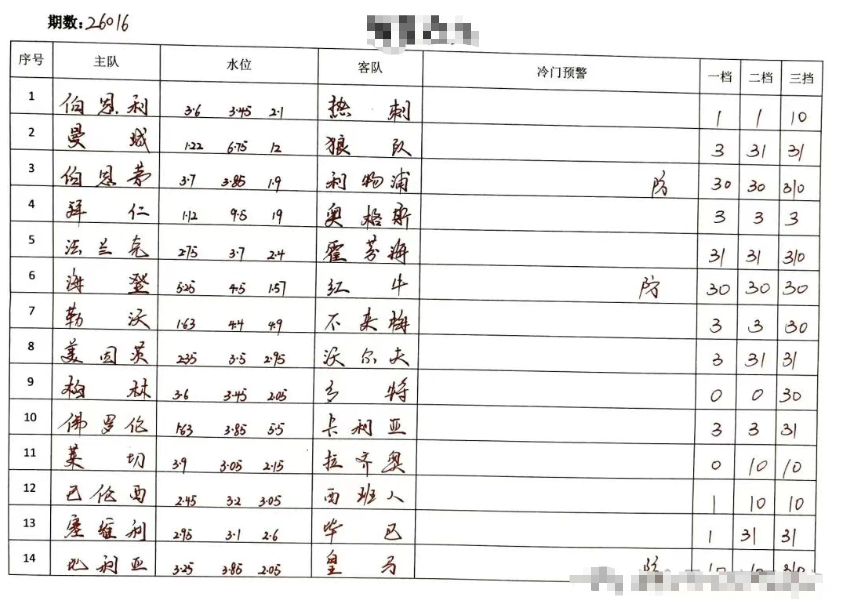 期数:26016
序号 主队 水位 客队 冷门预警 一档 二档 三挡
1 伯恩利 3.6 3.45 2.1 热刺 1 1 10
2 曼城 1.22 6.75 12 狼队 3 31 31
3 伯恩茅 3.7 3.85 1.9 利物浦 防 30 30 310
4 拜仁 1.12 9.5 19 奥格斯 3 3 3
5 法兰克 2.75 3.7 2.4 霍芬海 31 31 310
6 海登 5.25 4.5 1.57 红牛 防 30 30 30
7 勒沃 1.63 4.4 4.9 不来梅 3 3 30
8 美因茨 2.35 3.5 2.95 沃尔夫 3 31 31
9 柏林 3.6 3.45 2.05 多特 0 0 30
10 佛罗伦 1.63 3.85 5.5 卡利亚 3 3 31
11 莱切 3.9 3.05 2.15 拉齐奥 0 10 10
12 巴伦西 2.45 3.2 3.05 西班人 1 10 10
13 塞维利 2.95 3.1 2.6 毕巴 1 31 31
14 比利亚 3.25 3.85 2.05 皇马 防 310